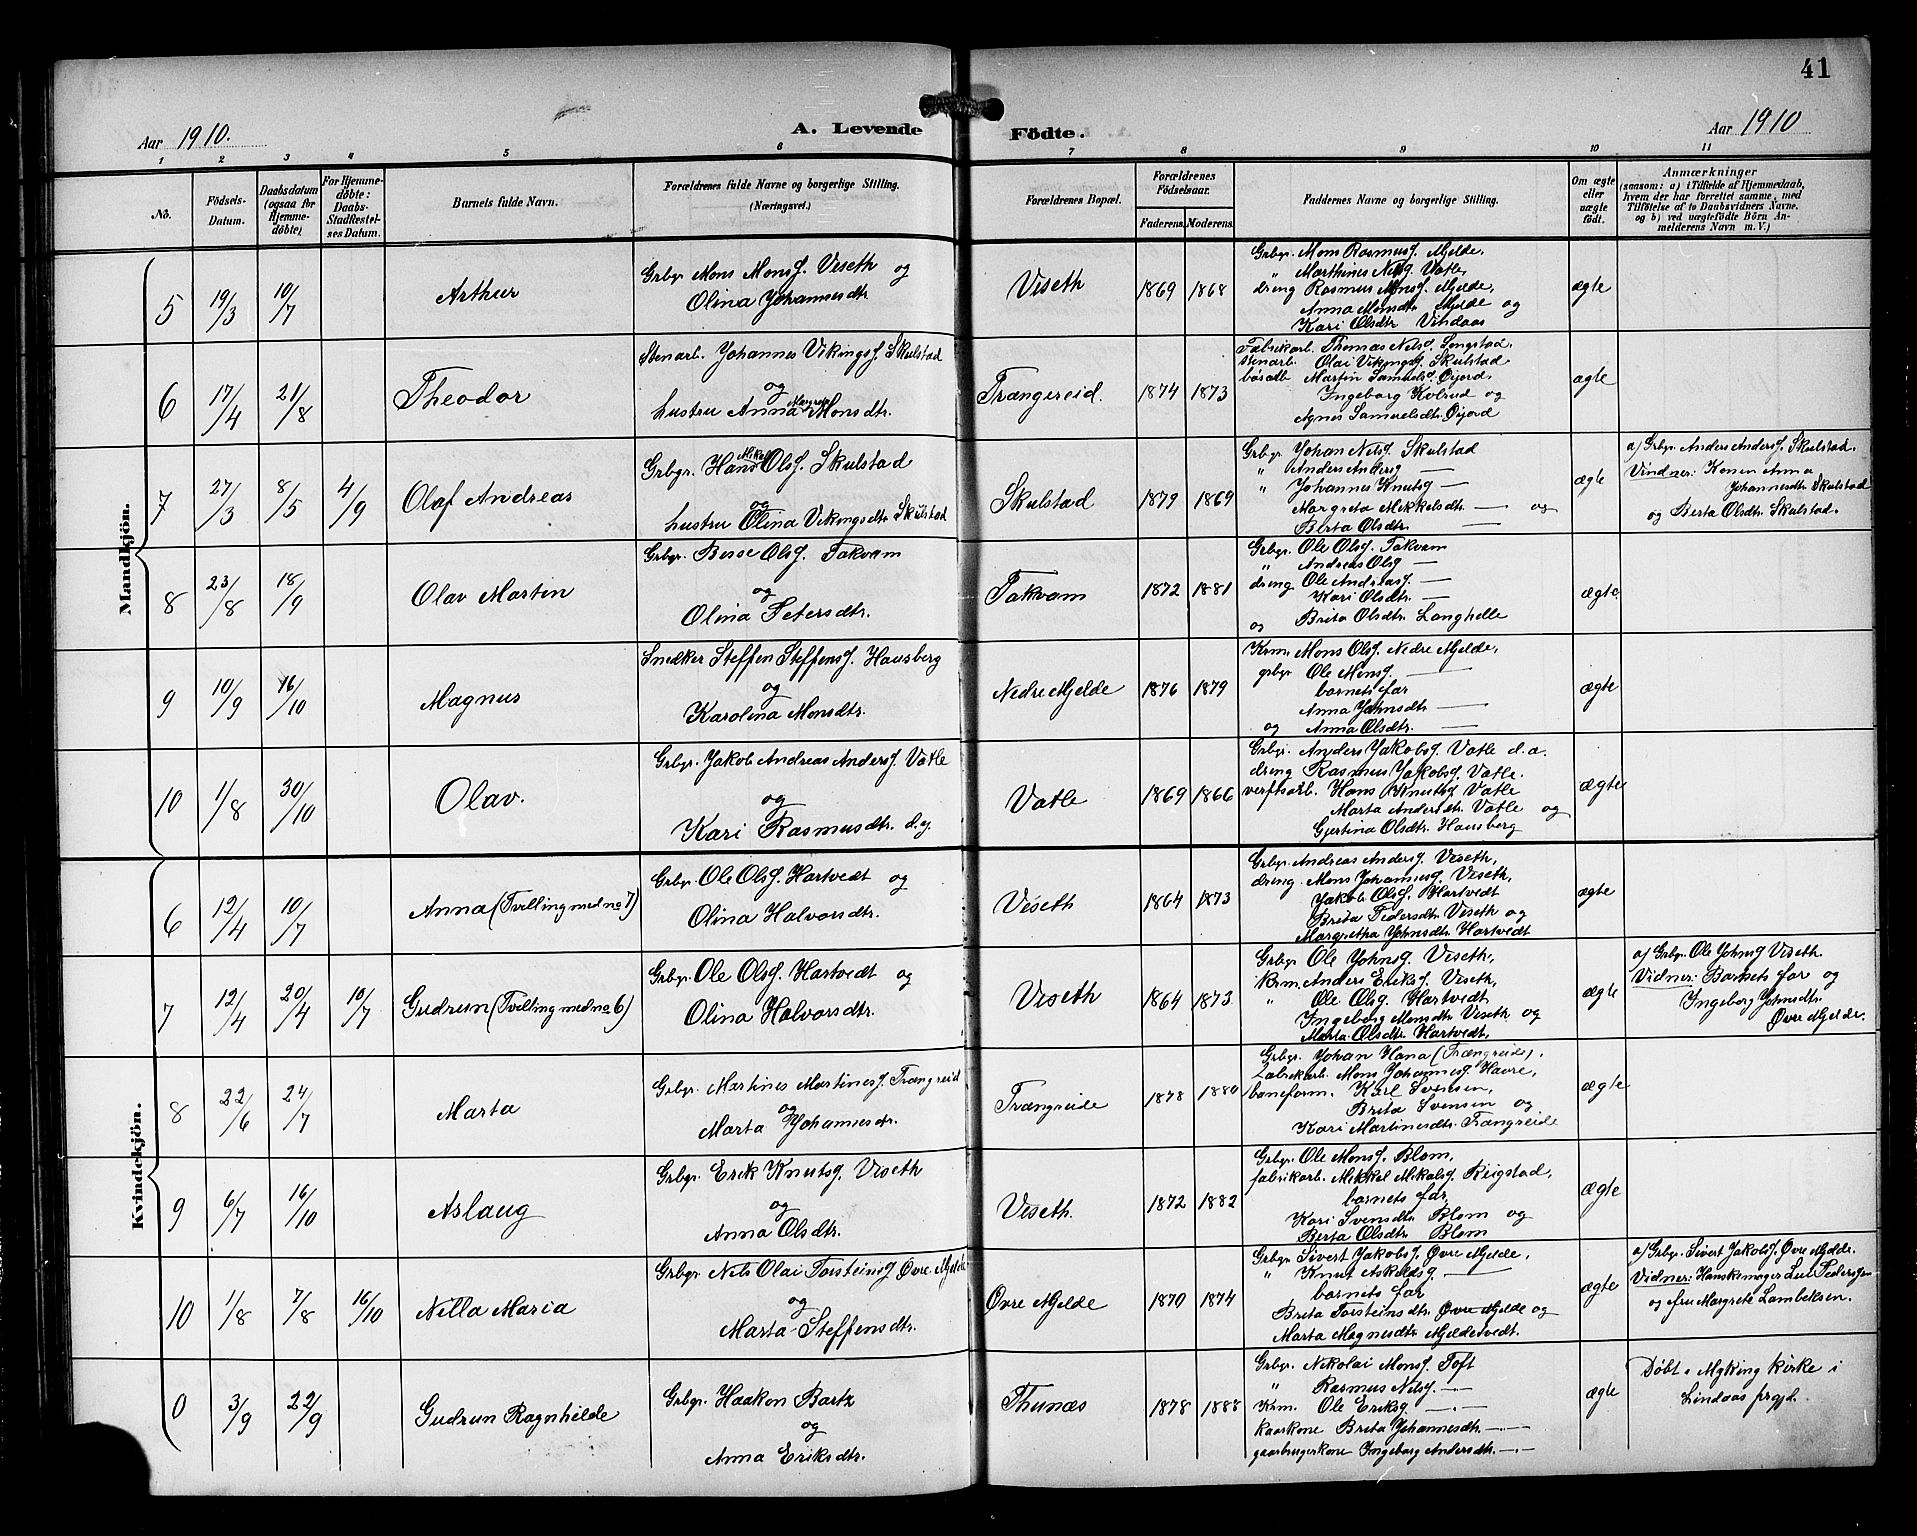 41
Aar 1910. A. Levende Födte. Aar 1910
1 2 3 4 5 6 7 8 9 10 11
No.
Födsels-Datum.
Daabsdatum (ogsaa for Hjemmedöbte).
For Hjemmedöbte: Daabs-Stadfæstelses Datum.
Barnets fulde Navn.
Forældrenes fulde Navne og borgerlige Stilling.
(Næringsvei.)
Forældrenes Bopæl.
Forældrenes Födselsaar.
Faderens. Moderens.
Faddernes Navne og borgerlige Stilling.
Om ægte eller uægte födt.
Anmærkninger
(saasom: a) i Tilfælde af Hjemmedaab,
hvem der har forrettet samme, med
Tilföielse af to Daabsvidners Navne.
og b) ved uægtefödte Börn Anmelderens Navn m. V.)
Mandkjön.
5 19/3 10/7 Arthur
Grbgr. Mons Monsf. Viseth og
Olina Johannesdtr.
Viseth 1869 1868
Grbgr. Mons Rasmusf. Mjelde,
" Marthines Nilsf. Vatle,
dreng Rasmus Monsf. Mjelde,
Anna Monsdtr. Mjelde og
Kari Olsdtr. Vindaas
ægte
6 17/4 21/8 Theodor
Stenarb. Johannes Vikingsf. Skulstad
og
hustru Anna Margreta Monsdtr.
Trængereid. 1874 1873
Fabrikarb. Thomas Nelsf. Songstad.
stenarb. Olai Vikingsf. Skulstad
Martin Samuelsf. Öijord,
Ingeborg Kolrud og
Agnes Samuelsdtr. Öijord
ægte
7 27/3 8/5 4/9 Olaf Andreas
Grbgr. Hans Mikal Olsf. Skulstad
og
hustru Olina Vikingsdtr. Skulstad
Skulstad 1879 1869
Grbgr. Johan Nelsf. Skulstad
" Anders Andersf —
" Johannes Knutsf —
Margreta Mikkelsdtr. — og
Berta Olsdtr. —
ægte
a) Grbgr. Anders Andersf. Skulstad.
Vindner: Konen Anna
Johannesdtr. Skulstad
og Berta Olsdtr. Skulstad.
8 23/8 18/9 Olav Martin
Grbgr. Besse Olsf. Takvam
og
Olina Petersdtr.
Takvam 1872 1881
Grbgr. Ole Olsf. Takvam
" Andreas Olsf —
dreng Ole Andreasf. —
Kari Olsdtr. —
og Brita Olsdtr. Langhelle
ægte
9 10/9 16/10 Magnus
Snedker Steffen Steffensf. Hausberg
og
Karolina Monsdtr.
Nedre Mjelde 1876 1879
Krm. Mons Olsf. Nedre Mjelde,
grbgr. Ole Monsf. —
barnets far
Anna Johnsdtr. —
og Anna Olsdtr. —
ægte
10 1/8 30/10 Olav.
Grbgr. Jakob Andreas Andersf. Vatle
og
Kari Rasmusdtr. d.y.
Vatle 1869 1866
Grbgr. Anders Jakobsf. Vatle d.a.
dreng Rasmus Jakobsf. Vatle.
verftsarb. Hans Knutsf. Vatle
Marta Andersdtr. Vatle og
Gjertina Olsdtr. Hausberg
ægte
Kvindekjön.
6 12/4 10/7 Anna (Tvilling med no 7)
Grbgr. Ole Olsf. Hartvedt og
Olina Halvorsdtr.
Viseth 1864 1873
Grbgr. Andreas Andersf. Viseth,
dreng. Mons Johannesf. Viseth,
Jakob Olsf. Hartvedt
Brita Pedersdtr. Viseth og
Margretha Johnsdtr. Hartvedt
ægte
7 12/4 20/4 10/7 Gudrun (Tvilling med no 6)
Grbgr. Ole Olsf. Hartvedt og
Olina Halvorsdtr.
Viseth 1864 1873
Grbgr. Ole Johnsf. Viseth,
Krm. Anders Eriksf. Viseth,
" Ole Olsf. Hartvedt
Ingeborg Monsdtr. Viseth og
Maria Olsdtr. Hartvedt,
ægte
a) Grbgr. Ole Johnsf. Viseth.
Vidner: Barnets far og
Ingeborg Johnsdtr.
Övre Mjelde.
8 22/6 24/7 Marta
Grbgr. Martines Martinesf. Trængreid
og
Marta Johannesdtr.
Trængreide 1878 1880
Grbgr. Johan Hana (Trængreide),
Fabrikarb. Mons Johannesf. Havre,
baneform. Karl Svensen,
Brita Svensen og
Kari Martinesdtr. Trængreide
ægte
9 6/7 16/10 Aslaug
Grbgr. Erik Knutsf. Viseth
og
Anna Olsdtr.
Viseth. 1872 1882
Grbgr. Ole Monsf. Blom,
fabrikarb. Mikkel Mikalsf. Reigstad,
barnets far,
Kari Svensdtr. Blom og
Berta Olsdtr. Blom
ægte
10 1/8 7/8 16/10 Nilla Maria
Grbgr. Nils Olai Torsteinsf. Övre Mjelde
og
Marta Steffensdtr.
Övre Mjelde 1870 1874
Grbgr. Sivert Jakobsf. Övre Mjelde,
" Knut Askeldsf —
barnets far
Brita Torsteinsdtr. Övre Mjelde og
Marta Magnesdtr. Mjeldetvedt.
ægte
a) Grbgr. Sivert Jakobsf. Övre Mjelde.
Vidner: Hanskemager Pedersen
og fru Margrete Lambeksen.
0 3/9 22/9 Gudrun Ragnhilde
Grbgr. Haakon Bartz
og
Anna Eriksdtr.
Thunæs 1878 1888
Grbgr. Nikolai Monsf. Toft
" Rasmus Nilsf. —
Krm. Ole Eriksf —
kaarkone Brita Johannesdtr. —
gaarbrugerkone Ingeborg Andersdtr. —
ægte
Döbt i Myking kirke i
Lindaas prgjd.